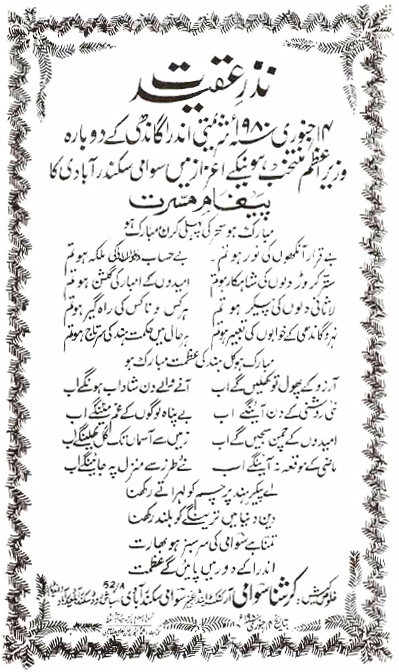 نذرِ عقیدت
۱۴ جنوری سنہ ۱۹۸۰ء شریمتی اندرا گاندھی کے دوبارہ
وزیر اعظم منتخب ہونیکے اعزاز میں سوامی سکندرآبادی کا
پیغامِ مسرت
مبارک ہو سحر کی پہلی کرن مبارک ہو
بے قرار آنکھوں کی نور ہو تم بے حساب دلوں کی ملکہ ہو تم
ستر کروڑ دلوں کی شاہکار ہو تم امیدوں کے انبار کی گلشن ہو تم
لاثانی دلوں کی پیکر ہو تم ہر کس و ناکس کی راہ گیر ہو تم
نہرو گاندھی کے خوابوں کی تعبیر ہو تم ہر حال میں حکمت ہند کی سرتاج ہو تم
مبارک ہو کل ہند کی عظمت مبارک ہو
آرزو کے پھول تو کھلیں گے اب آنے والے دن شاداب ہونگے اب
نئی روشنی کے دن آئینگے اب بے پناہ لوگوں کے غم مٹینگے اب
امیدوں کے چمن سجیں گے اب زمیں سے آسماں تک گل کھلینگے اب
ماضی کے موقعہ نہ آئینگے اب نئے طرز سے منزل پہ جائینگے اب
اے پیکرِ ہند پرچم کو لہراتے رکھنا
دین دنیا میں ترنگے کو بلند رکھنا
تمنا ہے سوامی کی سرسبز ہو بھارت
اندرا کے دور میں پایں گے عظمت
خلوص کیش: کرشنا سوامی آرٹسٹ سوامی سکندرآبادی 52/A
تاریخ ۱۴ جنوری